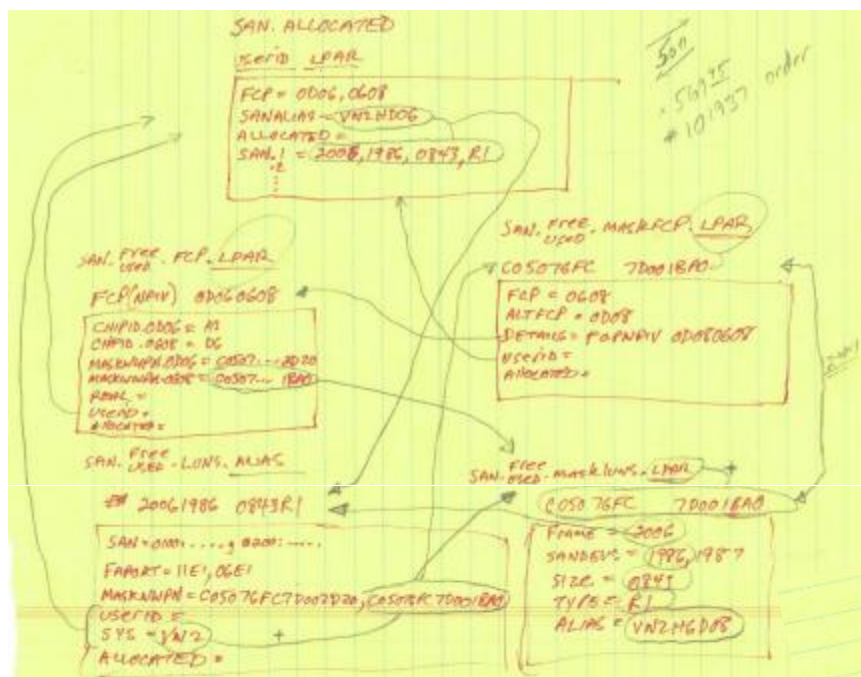 SAN. ALLOCATED
USERID LPAR
FCP = 0D06, 0608
SANALIAS = VN2HD06
ALLOCATED =
SAN.1 = 2006, 1986, 0843, R1
.2
56935
#101937 order
SAN. FREE USED . FCP. LPAR
FCP(NPIV) 0D060608
CHPID.0D06 = A2
CHPID.0608 = D6
MASKWWPN.0D06 = C0507....2D20
MASKWWPN.0608 = C0507... 1BA0
REAL =
USERID =
ALLOCATED =
SAN. FREE USED . MASKFCP. LPAR
C05076FC 7D001BA0
FCP = 0608
ALTFCP = 0D08
DETAILS = FCPNPIV 0D080608
USERID =
ALLOCATED =
SAN. FREE USED . LUNS. ALIAS
20061986 0843R1
SAN = 0100: ....., 0200: .....
FAPORT = 11E1, 06E1
MASKWWPN = C05076FC7D002D20, C05076FC7D001BA0
USERID =
SYS = VN2 +
ALLOCATED =
SAN. FREE USED . MASKLUNS. LPAR +
C05076FC 7D001BA0
FRAME = 2006
SANDEVS = 1986, 1987
SIZE = 0843
TYPE = R1
ALIAS = VN2HGD08